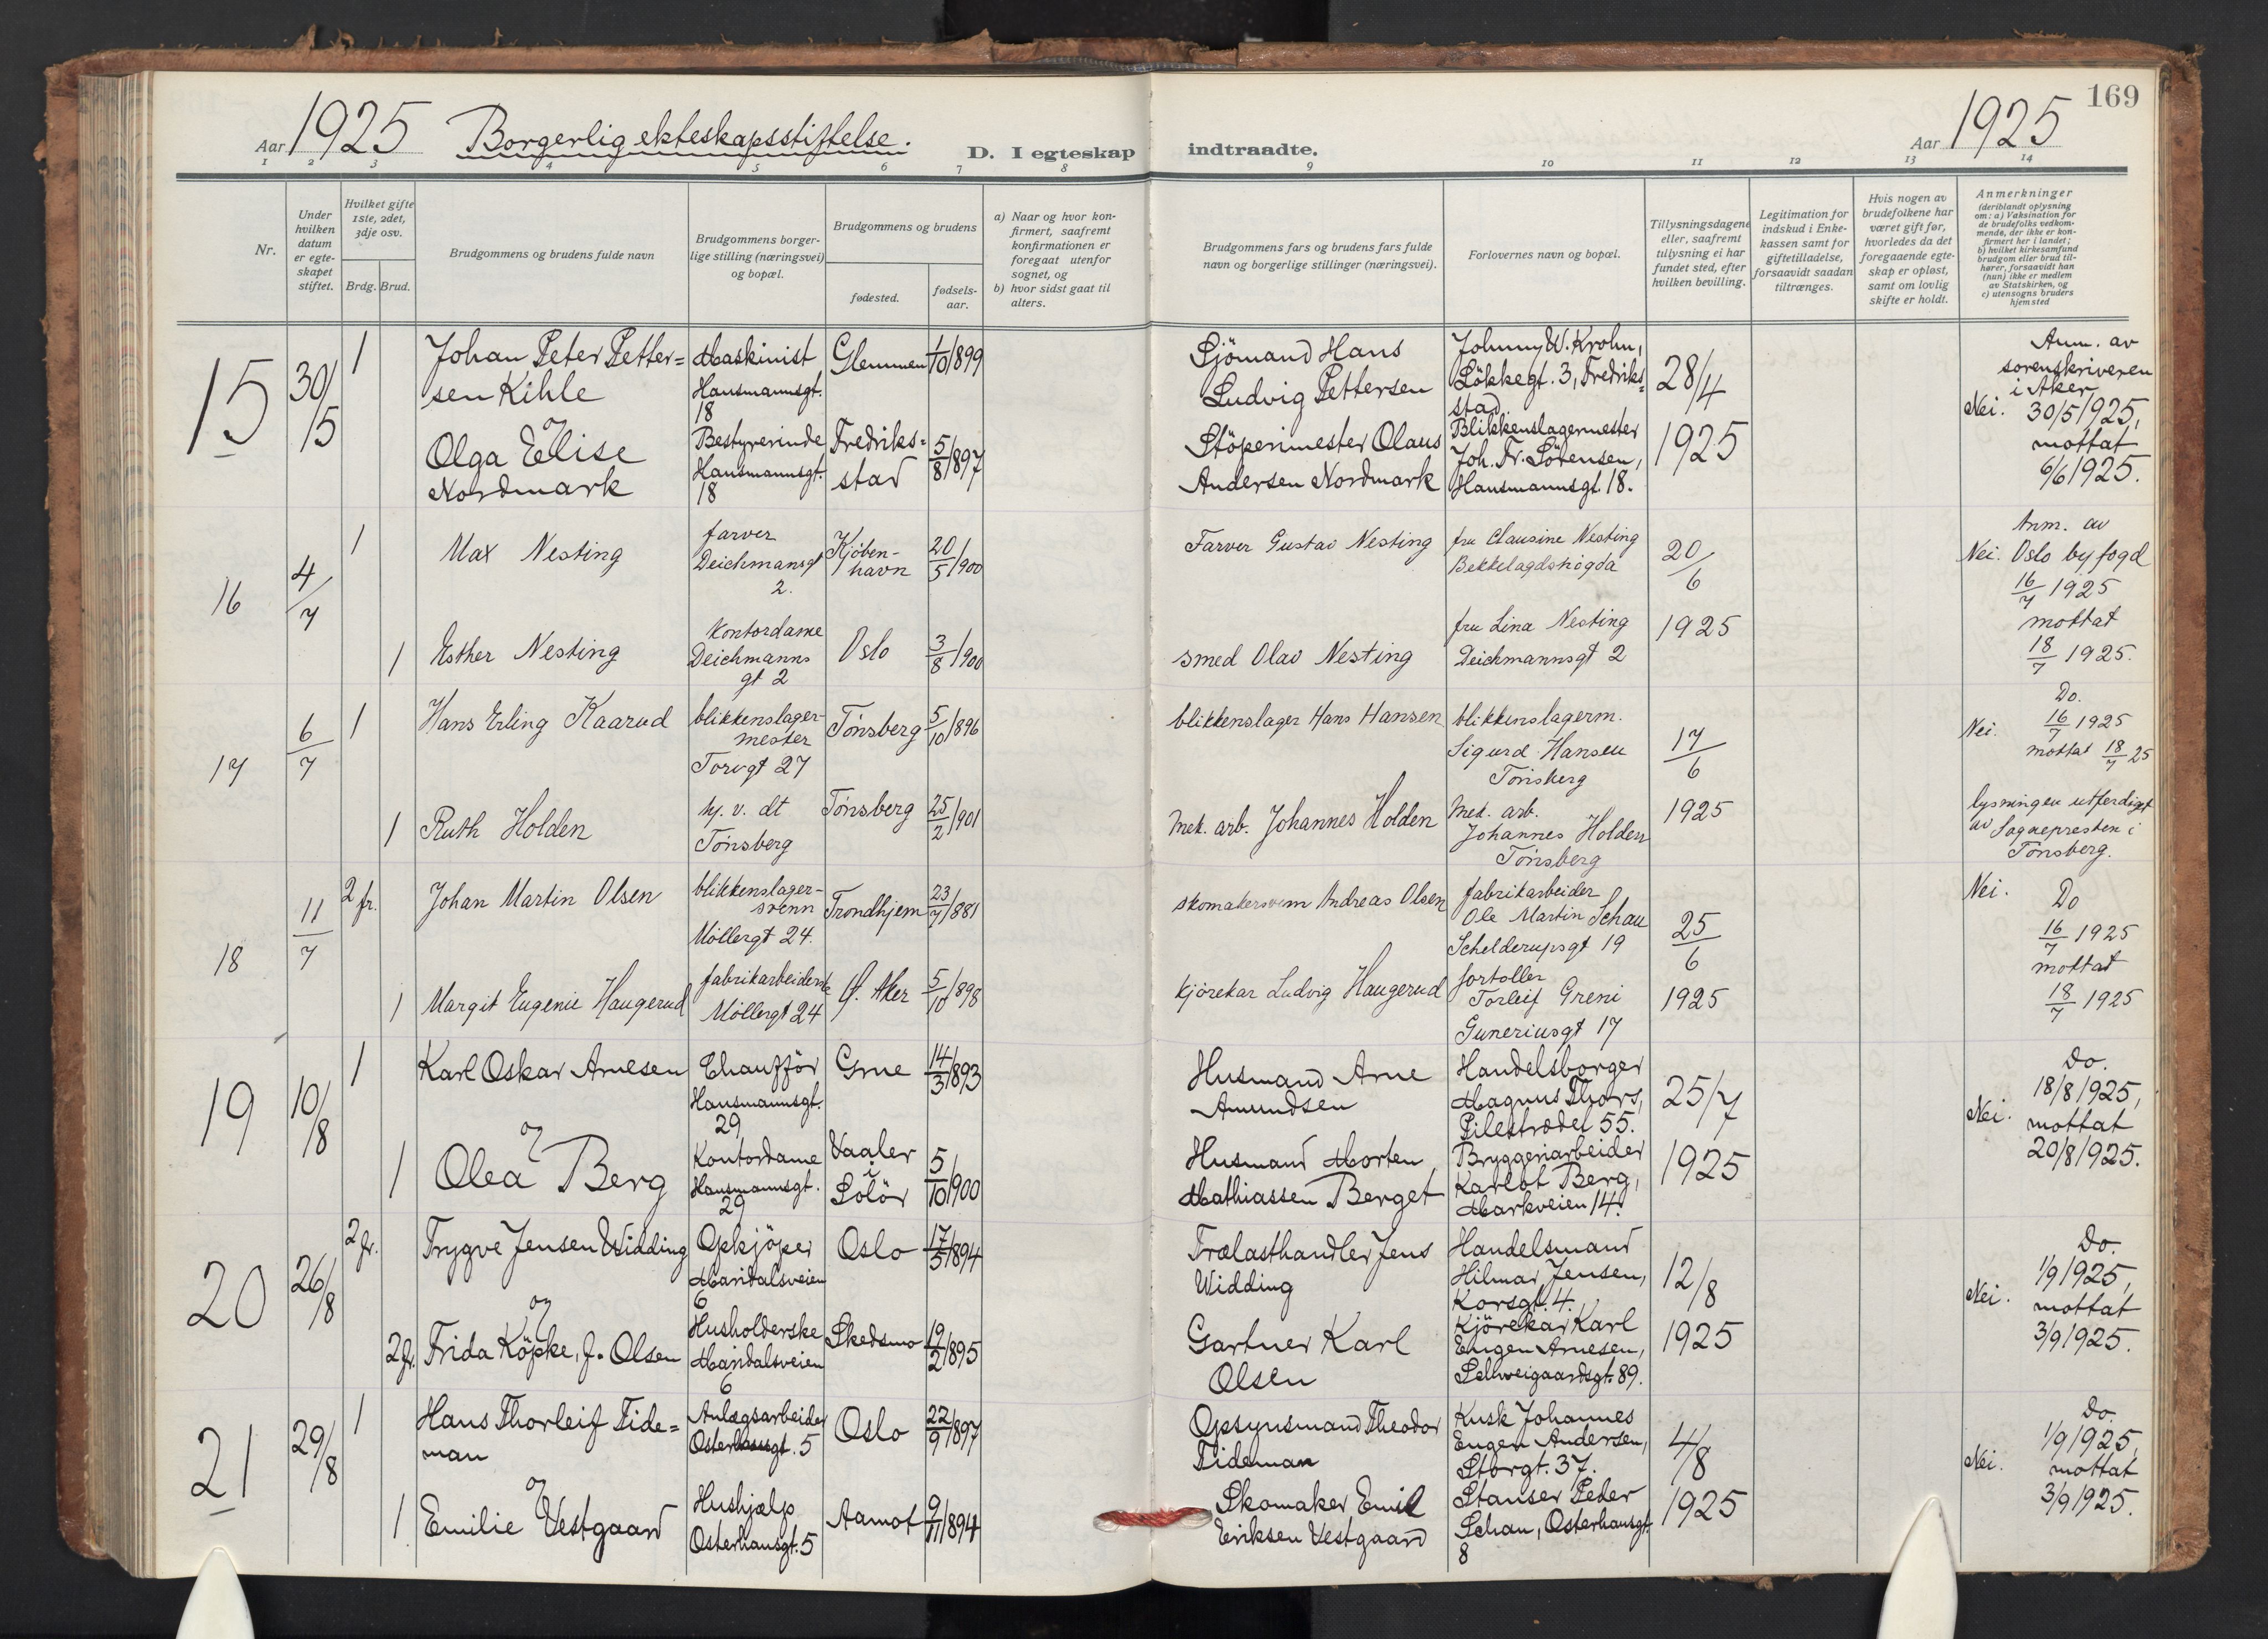 169
Aar 1925 Borgerlig ekteskapsstiftelse. D. I egteskap indtraadte. Aar 1925
1 2 3 4 5 6 7 8 9 10 11 12 13 14
Nr.
Under
hvilken
datum
er egte-
skapet
stiftet.
Hvilket gifte
1ste, 2det,
3dje osv.
Brdg. Brud.
Brudgommens og brudens fulde navn
Brudgommens borger-
lige stilling (næringsvei)
og bopæl.
Brudgommens og brudens
fødested.
fødsels-
aar.
a) Naar og hvor kon-
firmert, saafremt
konfirmationen er
foregaat utenfor
sognet, og
b) hvor sidst gaat til
alters.
Brudgommens fars og brudens fars fulde
navn og borgerlige stillinger (næringsvei).
Forlovernes navn og bopæl.
Tillysningsdagene
eller, saafremt
tillysning ei har
fundet sted, efter
hvilken bevilling.
Legitimation for
indskud i Enke-
kassen samt for
giftetilladelse,
forsaavidt saadan
tiltrænges.
Hvis nogen av
brudefolkene har
været gift før,
hvorledes da det
foregaaende egte-
skap er opløst,
samt om lovlig
skifte er holdt.
Anmerkninger
(deriblandt oplysning
om: a) Vaksination for
de brudefolks vedkom-
mende, der ikke er kon-
firmert her i landet;
b) hvilket kirkesamfund
brudgom eller brud til-
hører, forsaavidt han
(hun) ikke er medlem
av Statskirken, og
c) utensogns bruders
hjemsted
15
30/5
1
Johan Peter Petter=
sen Kihle
Maskinist
Hausmannsgt.
18
Glemmen
1/10 1899
Sjömand Hans
Ludvig Pettersen
Johnny W. Krohn,
Lökkegt. 3, Fredriks=
stad.
28/4
og
Olga Elise
Nordmark
Bestyrerinde
Hausmannsgt.
18
Fredriks=
stad
5/8 1897
Stöperimester Olaus
Andersen Nordmark
Blikkenslagermester
Joh. Fr. Sörensen,
Hausmannsgt. 18.
1925
Nei.
Anm. av
sorenskriveren
i Aker
30/5 1925,
mottat
6/6 1925.
16
4/7
1
Max Nesting
farver
Deichmansgt
2.
Kjöben-
havn
20/5 1900
Farver Gustav Nesting
fru Clausine Nesting
Bekkelagdshøgda
20/6
1
Esther Nesting
Kontordame
Deichmanns
gt 2
Oslo
3/8 1900
smed Olav Nesting
fru Lina Nesting
Deichmannsgt 2
1925
Nei.
Anm. av
Oslo byfogd
16/7 1925
mottat
18/7 1925.
17
6/7
1
Hans Erling Kaarud
blikkenslager-
mester
Torvgt 27
Tønsberg
5/10 1896
blikkenslager Hans Hansen
blikkenslagerm.
Sigurd Hansen
Tønsberg
17/6
1
Ruth Holden
hj. v. dt
Tønsberg
Tønsberg
25/2 1901
mek. arb. Johannes Holden
Mek. arb.
Johannes Holden
Tønsberg
1925
Nei.
Do.
16/7 1925
mottat 18/7 25
lysningen utferdiget
av Sognepresten i
Tønsberg.
18
11/7
2 fr.
Johan Martin Olsen
blikkenslager-
svenn
Møllergt 24.
Trondhjem
23/7 1881
skomakersvenn Andreas Olsen
fabrikarbeider
Ole Martin Schau
Schelderupsgt 19
25/6
1
Margit Eugenie Haugerud
fabrikarbeiderske
Møllergt 24
Ø. Aker
5/10 1898
kjørekar Ludvig Haugerud
fortoller
Torleif Greni
Guneriusgt 17
1925
Nei.
Do
16/7 1925
mottat
18/7 1925
19
10/8
1
Karl Oskar Arnesen
Chaufför
Hausmannsgt.
29
Grue
14/3 1893
Husmand Arne
Amundsen
Handelsborger
Magnus Thors,
Pilestrædet 55.
25/7
og
1
Olea Berg
Kontordame
Hausmannsgt.
29
Vaaler
i
Solör
5/10 1900
Husmand Morten
Mathiassen Berget
Bryggeriarbeider
Karlot Berg,
Markveien 14.
1925
Nei.
Do.
18/8 1925,
mottat
20/8 1925.
20
26/8
2 fr.
Trygve Jensen Widding
Opkjöper
Maridalsveien
6
Oslo
17/5 1894
Trælasthandler Jens
Widding
Handelsmand
Hilmar Jensen,
Korsgt. 4.
12/8
og
2 fr.
Frida Köpke, f. Olsen
Husholderske
Maridalsveien
6
Skedsmo
19/2 1895
Gartner Karl
Olsen
Kjörekar Karl
Eugen Arnesen,
Schweigaardsgt. 89.
1925
Nei.
Do.
1/9 1925,
mottat
3/9 1925.
21
29/8
1
Hans Thorleif Tide=
man
Anlægsarbeider
Osterhausgt. 5
Oslo
22/9 1897
Opsynsmand Theodor
Tideman
Kusk Johannes
Eugen Andersen,
Storgt. 37.
4/8
og
1
Emilie Vestgaard
Hushjælp
Osterhausgt. 5
Aamot
9/11 1894
Skomaker Emil
Eriksen Vestgaard
Stanser Peder
Schau, Osterhausgt.
8
1925
Nei.
Do.
1/9 1925,
mottat
3/9 1925.